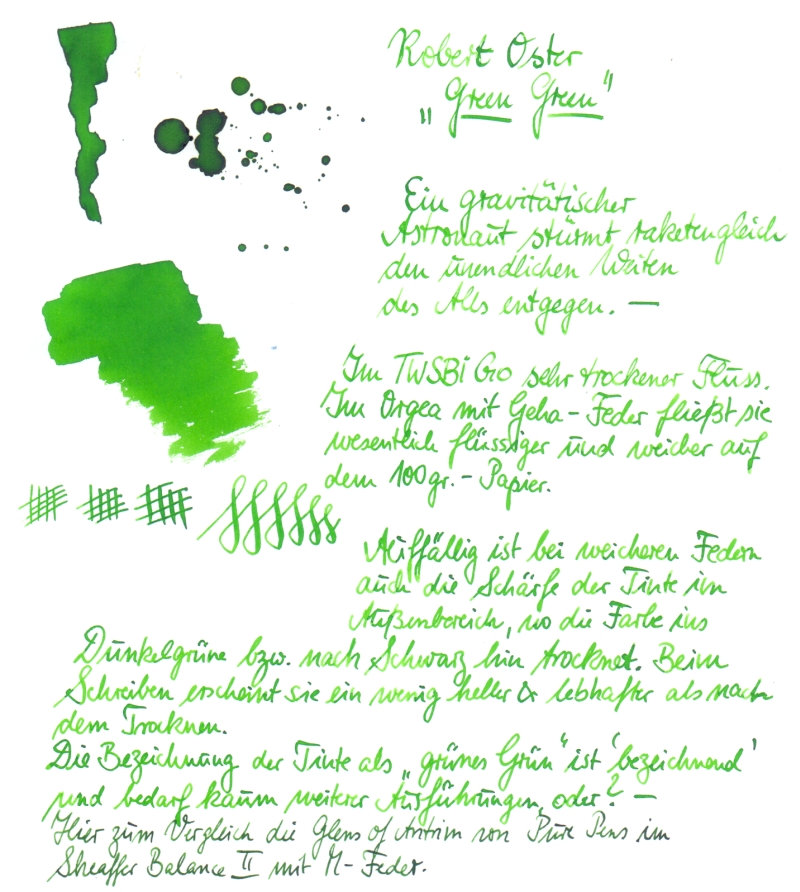 Robert Oster
„Green Green"
Ein gravitätischer
Astronaut stürmt raketengleich
den unendlichen Weiten
des Alls entgegen. —
Im TWSBi Go sehr trockener Fluss.
Im Orgea mit Geha-Feder fließt sie
wesentlich flüssiger und weicher auf
dem 100gr.-Papier.
Auffällig ist bei weicheren Federn
auch die Schärfe der Tinte im
Außenbereich, wo die Farbe ins
Dunkelgrüne bzw. nach Schwarz hin trocknet. Beim
Schreiben erscheint sie ein wenig heller & lebhafter als nach
dem Trocknen.
Die Bezeichnung der Tinte als „grünes Grün" ist 'bezeichnend'
und bedarf kaum weiterer Ausführungen, oder? —
Hier zum Vergleich die Glens of Antrim von Pure Pens im
Sheaffer Balance II mit M-Feder.